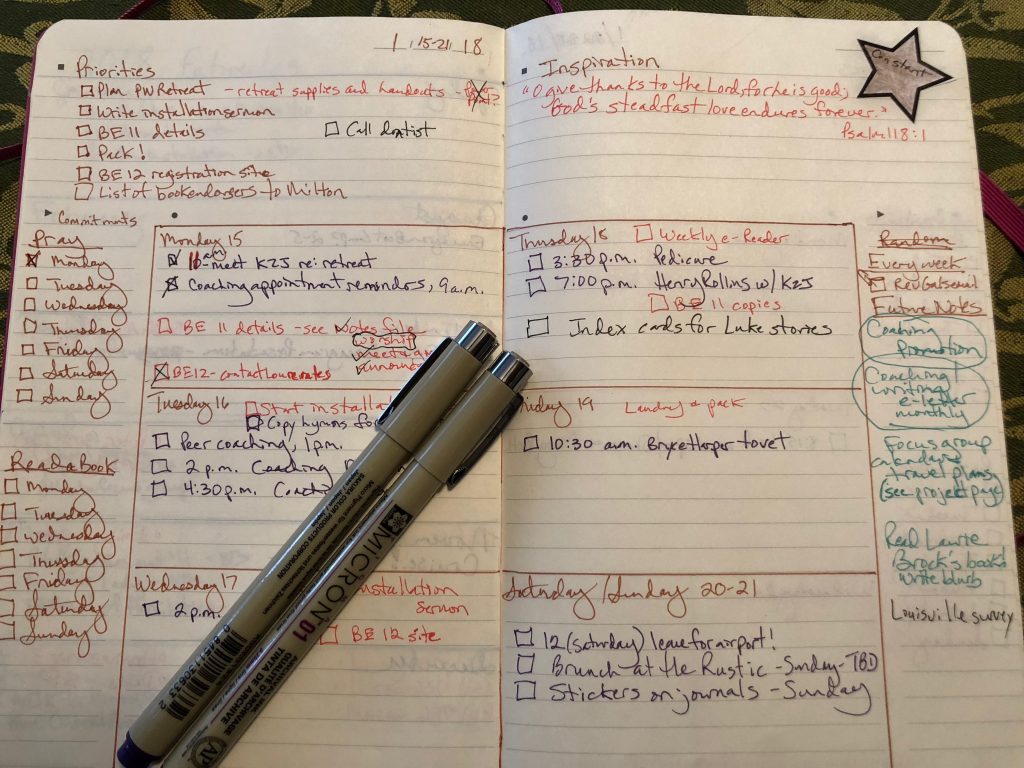 1.15-21.18
Priorities
Plan PW Retreat - retreat supplies and handouts -
Write installation sermon
BE 11 details
Call dentist
Pack!
BE 12 registration site
List of book endorsers to Milton
Commitments
Pray
Monday
Tuesday
Wednesday
Thursday
Friday
Saturday
Sunday
Read a Book
Monday
Tuesday
Wednesday
Thursday
Friday
Saturday
Sunday
Monday 15
meet KZJ re: retreat
Coaching appointment reminders, 9 a.m.
BE 11 details - see notes file
worship
BE12 - contact
Tuesday 16
Start
Copy hymns for
Peer coaching, 1pm.
2 p.m. Coaching
4:30 p.m.
Wednesday 17
2 p.m.
installation
sermon
BE 12 site
Inspiration
Constant
"O give thanks to the Lord, for he is good;
God's steadfast love endures forever."
Psalm 118:1
Thursday 18
Weekly e-Reader
3:30 p.m. Pedicure
7:00 p.m. Henry Rollins w/ KZJ
BE 11 copies
Index cards for Luke stories
19
Laundry & pack
10:30 a.m. Bryce Harper to vet
Saturday/Sunday 20-21
12 (Saturday) leave for airport!
Brunch at the Rustic - Sunday - TBD
Stickers on journals - Sunday
Random
Every week
RevGalsemail
Future Notes
Coaching
Promotion
Coaching/
writing
e-letter
monthly
Focus group
calendar &
travel plans
(see project page)
Read Laurie
Brock's book &
write blurb
Louisville survey
MICRON 01
SAKURA COLOR PRODUCTS CORPORATION
TINTA DE ARCHIVE
AP